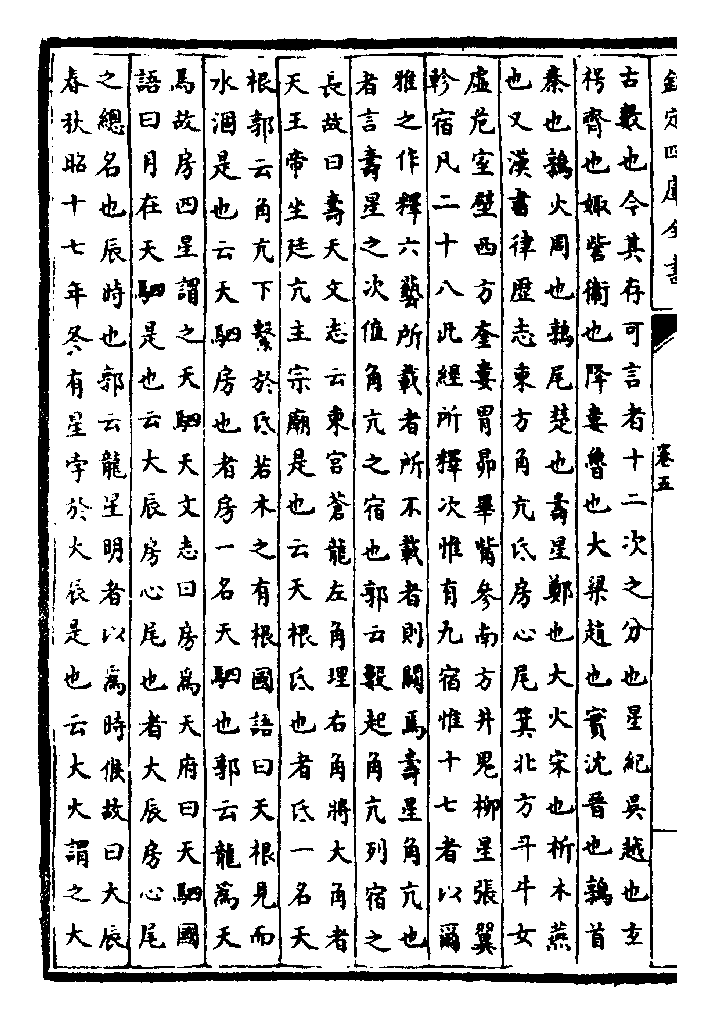 欽定四庫全書
卷五
古數也今其存可言者十二次之分也星紀吳越也玄
枵齊也娵訾衞也降婁魯也大梁趙也實沈晉也鶉首
秦也鶉火周也鶉尾楚也壽星鄭也大火宋也析木燕
也又漢書律歴志東方角亢氐房心尾箕北方斗牛女
虛危室壁西方奎婁胃昴畢觜參南方井鬼柳星張翼
軫宿凡二十八此經所釋次惟有九宿惟十七者以爾
雅之作釋六藝所載者所不載者則闕焉壽星角亢也
者言壽星之次值角亢之宿也郭云數起角亢列宿之
長故曰壽天文志云東宮蒼龍左角理右角將大角者
天王帝坐廷亢主宗廟是也云天根氐也者氐一名天
根郭云角亢下繫於氐若木之有根國語曰天根見而
水涸是也云天駟房也者房一名天駟也郭云龍為天
馬故房四星謂之天駟天文志曰房為天府曰天駟國
語曰月在天駟是也云大辰房心尾也者大辰房心尾
之總名也辰時也郭云龍星明者以為時候故曰大辰
春秋昭十七年冬有星孛於大辰是也云大火謂之大